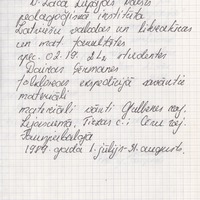 V. Lāča Liepājas Valsts
pedagoģiskā institūta
Latviešu valodas un literatūras
un mūz. fakultātes
spec. 02.19. 2L₂ studentes
Dainas Germanes
folkloras ekspedīcijā savāktie
materiāli
materiāli vākti Gulbenes raj.
Lejasciemā, Tirzas c.; Cēsu raj.
Jaunpiebalgā
1984. gada 1. jūlijs-31. augusts.